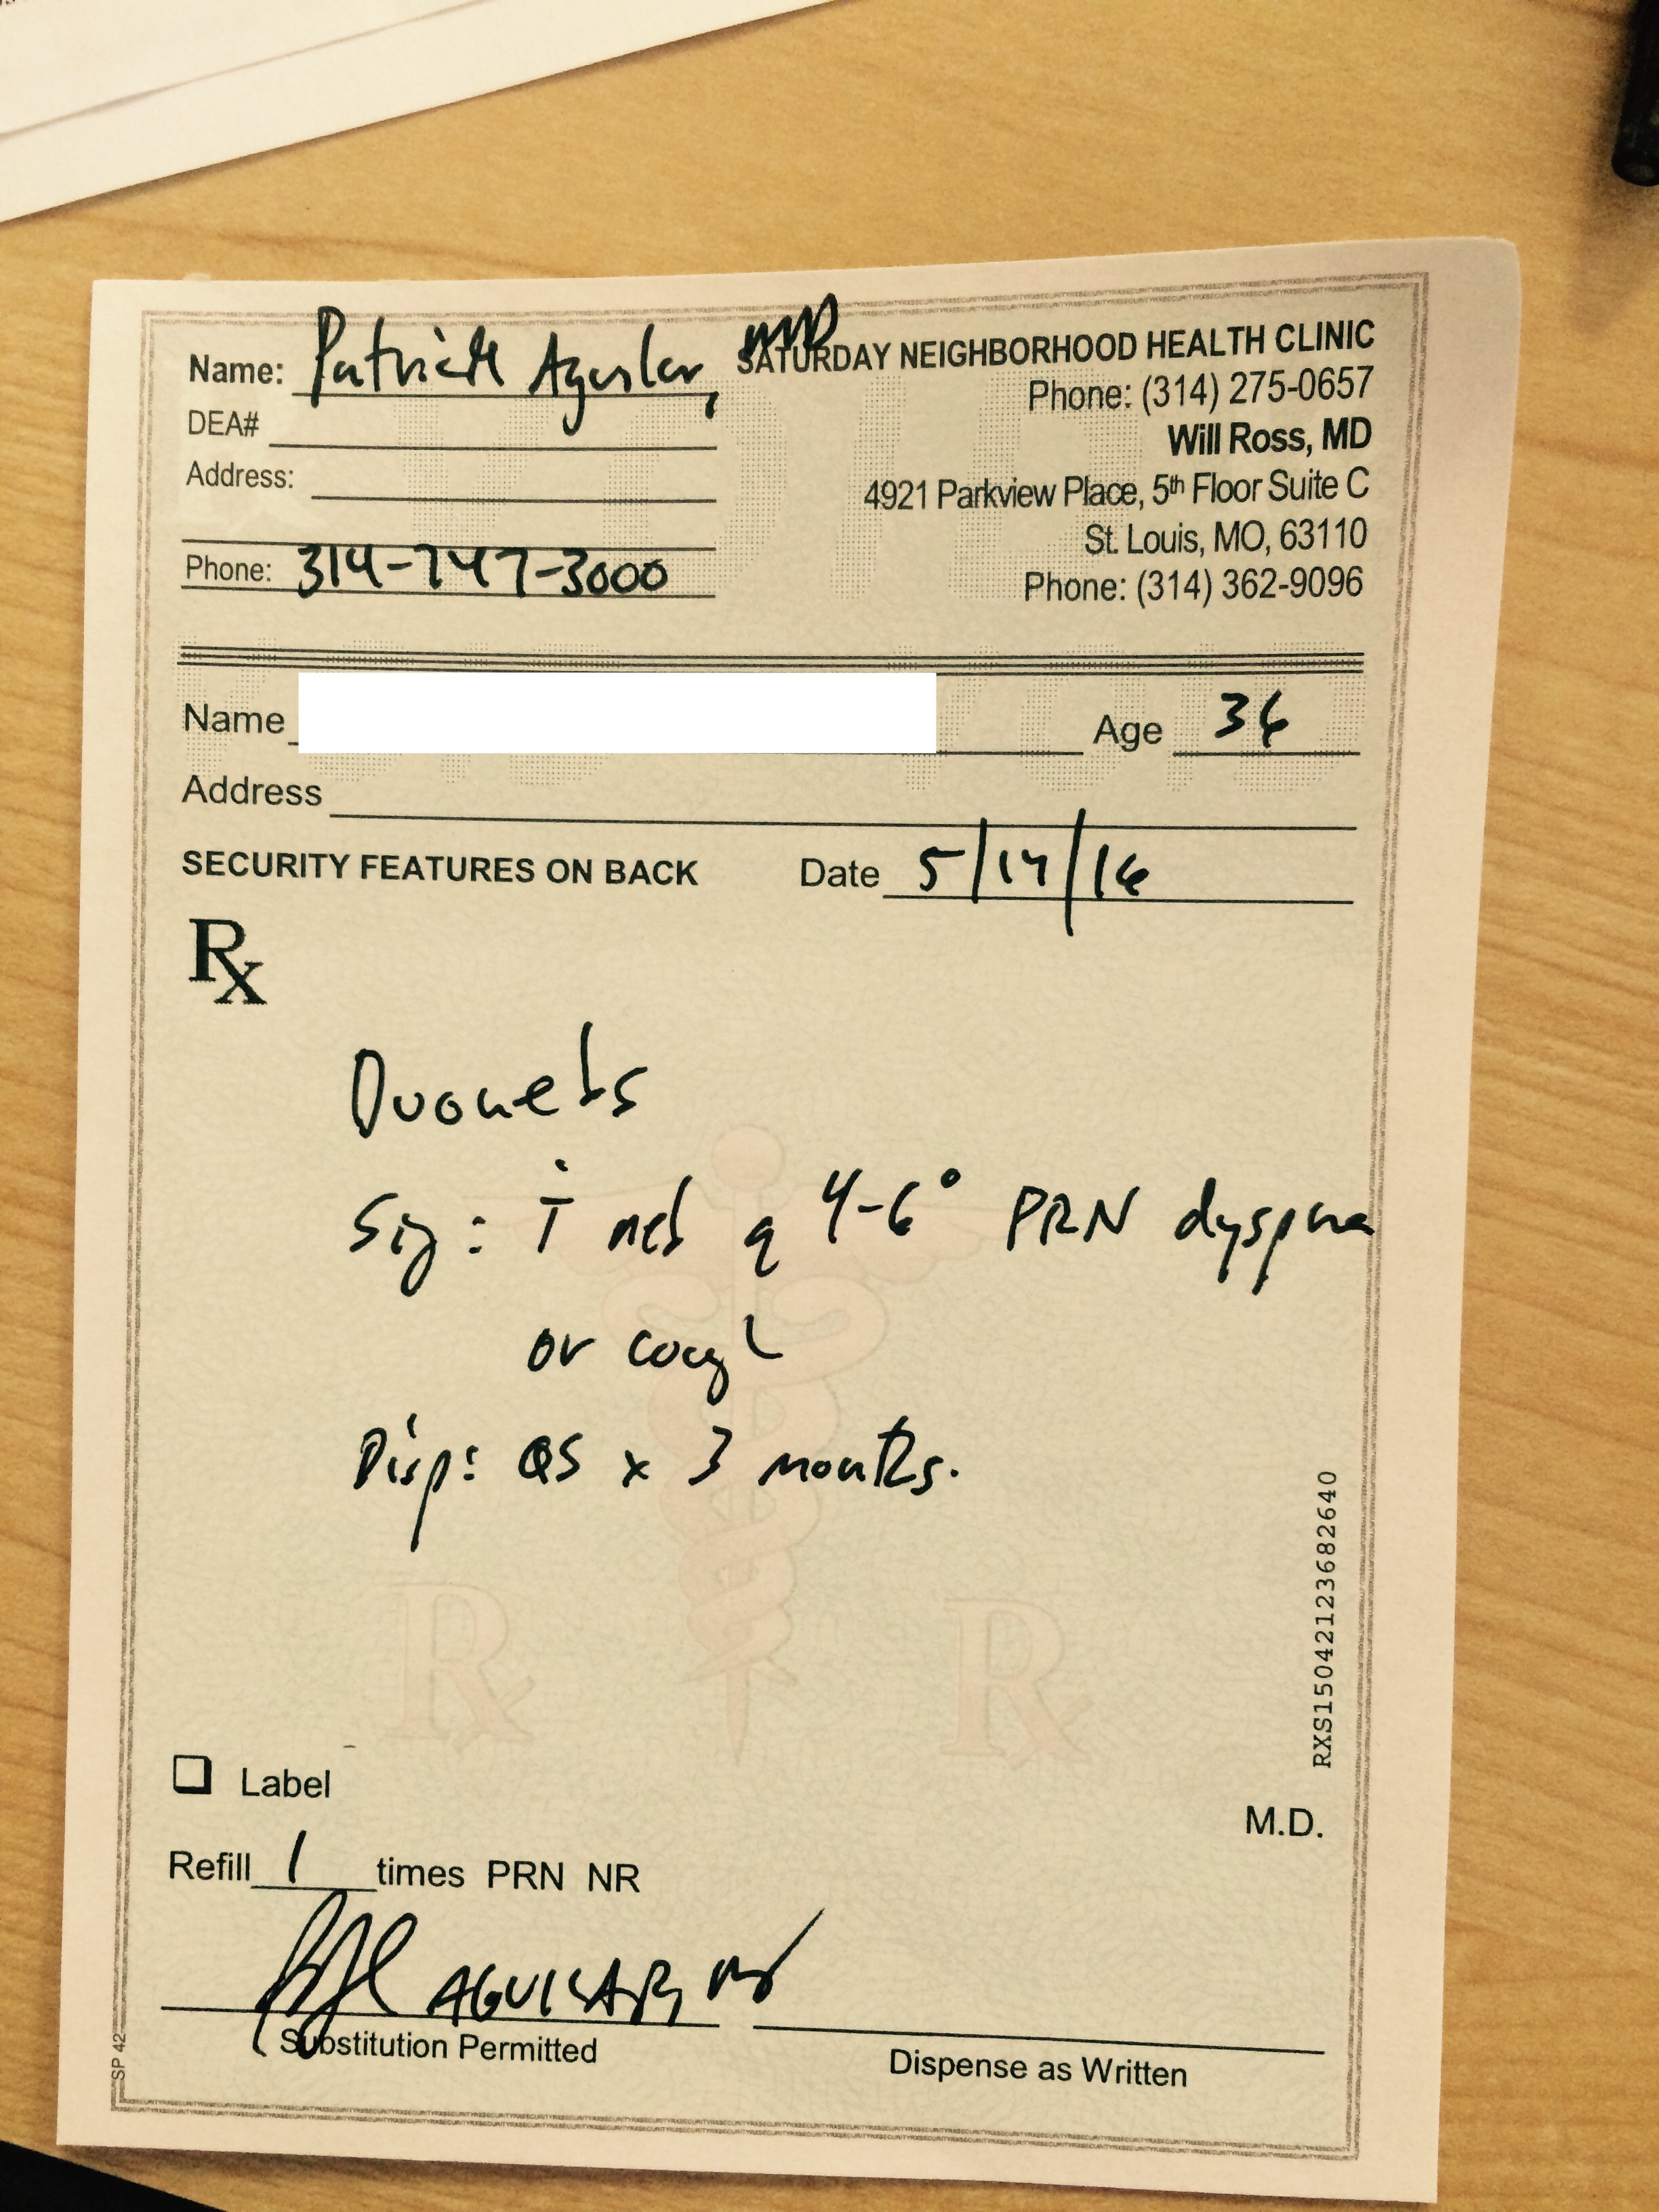 Name: Patrick Aguilar, MD
DEA#
Address:
Phone: 314-747-3000
SATURDAY NEIGHBORHOOD HEALTH CLINIC
Phone: (314) 275-0657
Will Ross, MD
4921 Parkview Place, 5th Floor Suite C
St. Louis, MO, 63110
Phone: (314) 362-9096
Name Age 36
Address
SECURITY FEATURES ON BACK Date 5/14/16
Rx
Duonebs
Sig: i neb q 4-6° PRN dyspnea
or cough
Disp: QS x 3 months.
RXS15042123682640
Label
M.D.
Refill 1 times PRN NR
AGUILAR, MD
Substitution Permitted
Dispense as Written
SP 42